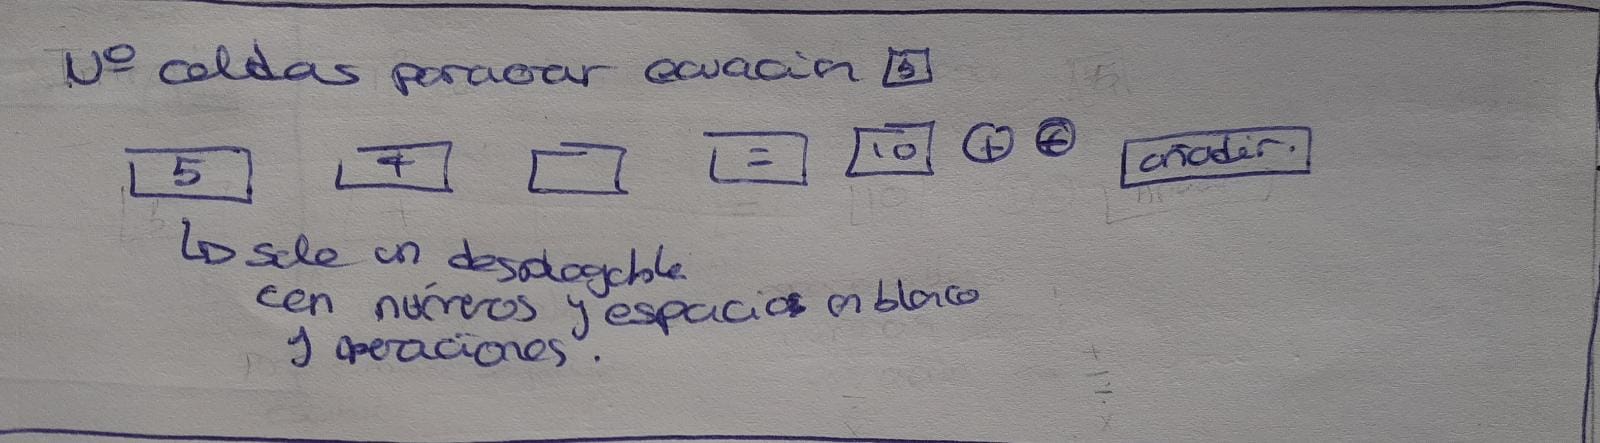 Nº celdas para ecuación 5
5 + = 10 + añadir.
↳ sale un desplegable
con números y espacios en blanco
y operaciones.